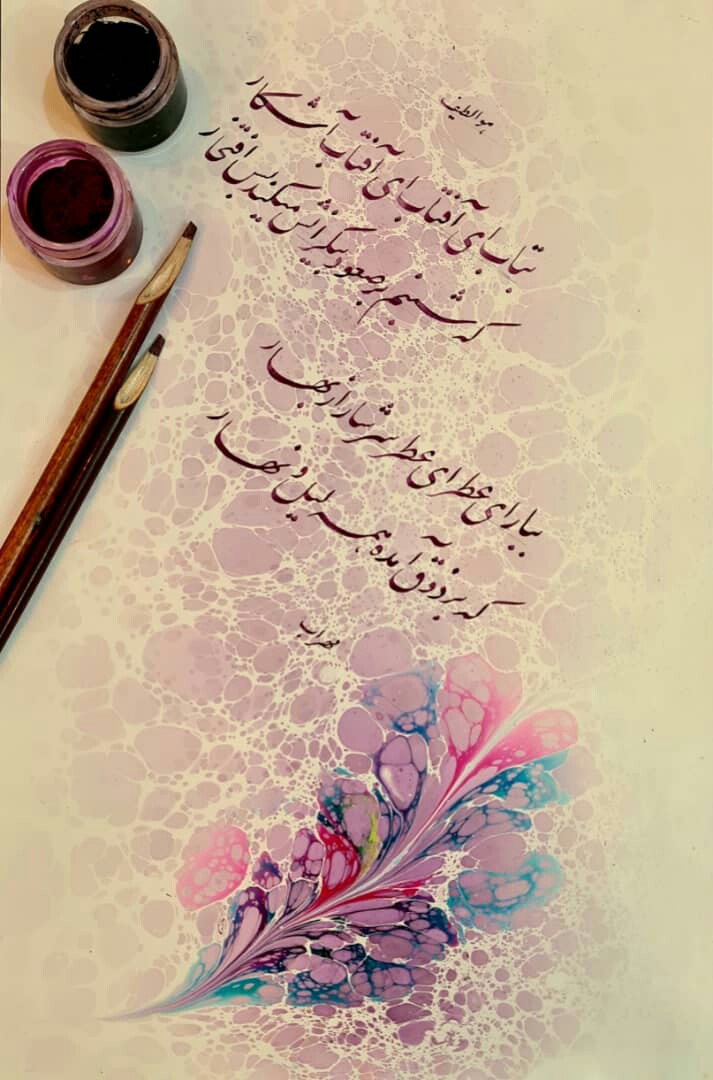 هوالطیف
بتاب ای آفتاب ای آفتاب آشکار
که شبنم بر صعود بیکرانش میکند بس افتخار
ببار ای عطر ای عطر سرشار از بهار
که بر ذوق آمده همه لیل و نهار
مهراب